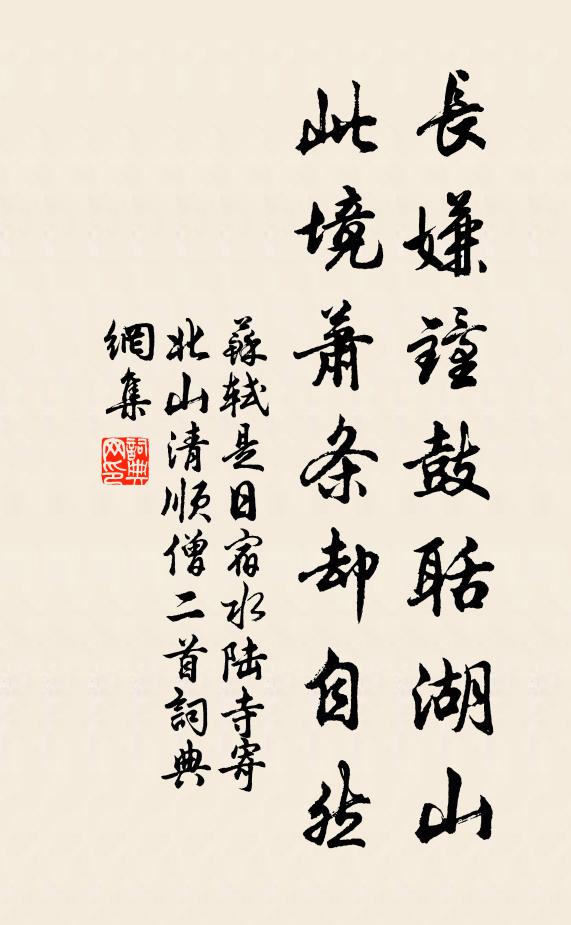 長嫌鐘鼓聒湖山
此境萧条却自然
蘇軾是日宿水陆寺寄
北山清順僧二首詞典
網集
詞典
网印